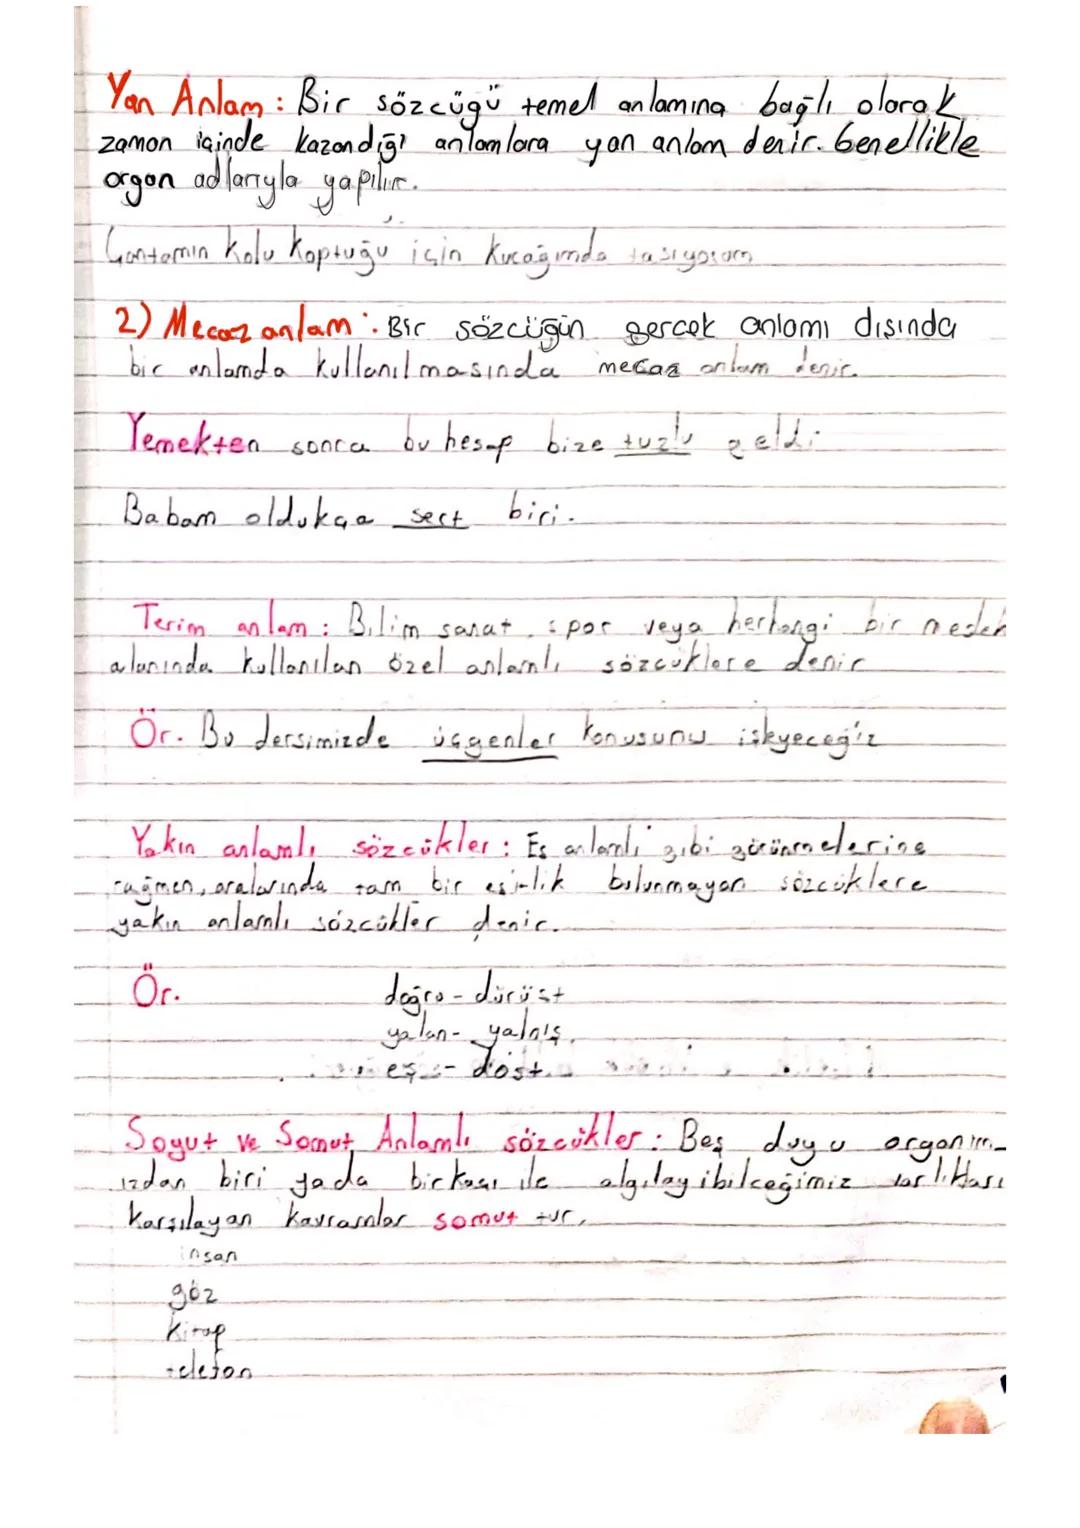 Yan Anlam : Bir sözcüğü temel anlamına bağlı olarak
zaman içinde kazandığı anlamlara yan anlam denir. Genellikle
organ adlarıyla yapılır.
Çantamın kolu koptuğu için kucağımda taşıyorum
2) Mecaz anlam : Bir sözcüğün gerçek anlamı dışında
bir anlamda kullanılmasında mecaz anlam denir.
Yemekten sonra bu hesap bize tuzlu geldi
Babam oldukça sert biri.
Terim anlam : Bilim sanat, spor veya herhangi bir meslek
alanında kullanılan özel anlamlı sözcüklere denir
Ör. Bu dersimizde üçgenler konusunu işleyeceğiz
Yakın anlamlı sözcükler : Eş anlamlı gibi görünmelerine
rağmen, aralarında tam bir eşitlik bulunmayan sözcüklere
yakın anlamlı sözcükler denir.
Ör. doğru - dürüst
yalan - yalnış
eş - dost
Soyut ve Somut Anlamlı sözcükler : Beş duyu organım-
ızdan biri yada birkaçı ile algılayibilceğimiz varlıkları
karşılayan kavramlar somut tur.
insan
göz
kitap
telefon